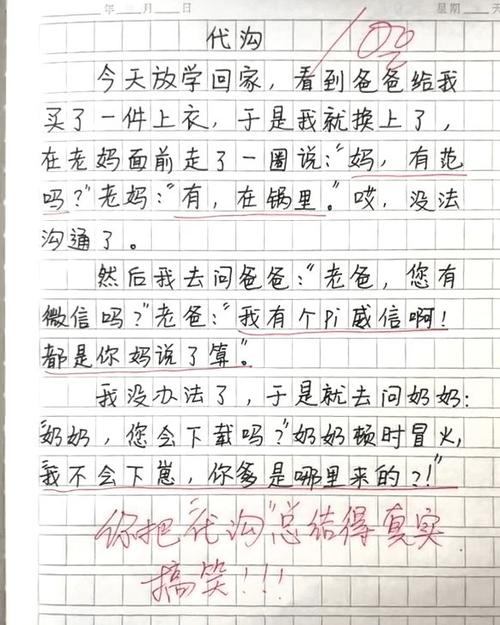 年 月 日 星期 天
代沟
100
今天放学回家，看到爸爸给我
买了一件上衣，于是我就换上了，
在老妈面前走了一圈说：“妈，有范
吗？”老妈：“有，在锅里。”哎，没法
沟通了。
然后我去问爸爸：“老爸，您有
微信吗？”老爸：“我有个Pi威信啊！
都是你妈说了算”。
我没办法了，于是就去问奶奶：
“奶奶，您会下载吗？”奶奶顿时冒火，
我不会下崽，你爹是哪里来的？！”
你把“代沟”总结得真实
搞笑！！！